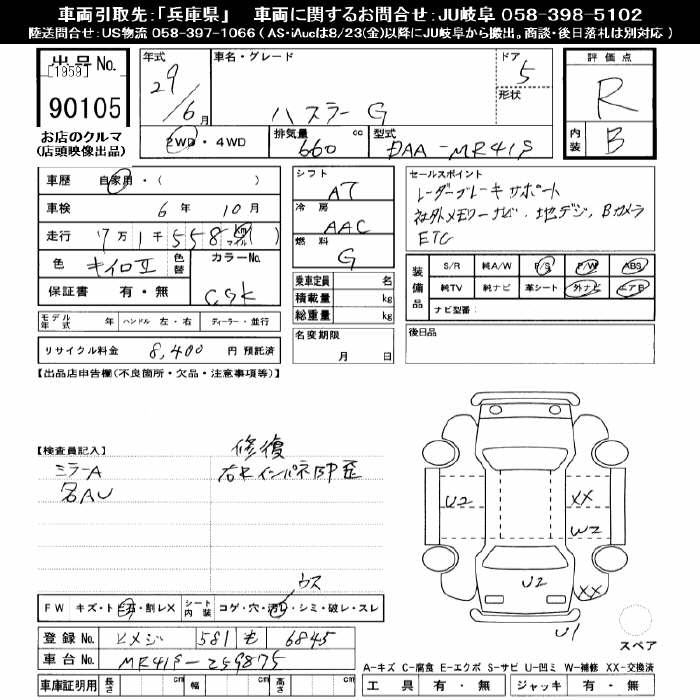 車両引取先:「兵庫県」 車両に関するお問合せ:JU岐阜 058-398-5102
陸送問合せ:US物流 058-397-1066 ( AS・iAucは8/23(金)以降にJU岐阜から搬出。商談・後日落札は別対応 )
出品No.
[1959]
90105
お店のクルマ
(店頭映像出品)
年式
29/6月
車名・グレード
ハスラー G
ドア
5
形状
2WD・4WD
排気量
660 cc
型式
DAA-MR41S
評価点
R
内装
B
車歴 自家用・( )
車検 6年 10月
走行 7万1千558 km マイル ( )
色 キイロⅡ 色替 カラーNo.
保証書 有・無 C9K
モデル年式 年 ハンドル 左・右 ディーラー・並行
リサイクル料金 8,400 円 預託済
シフト
AT
冷房
AAC
燃料
G
乗車定員 名
積載量 kg
総重量 kg
名変期限
月 日
セールスポイント
レーダーブレーキサポート
社外メモリーナビ、地デジ、Bカメラ
ETC
装備品
S/R 純A/W P/S P/W ABS
純TV 純ナビ 革シート 外ナビ エアB
ナビ型番:
後日品
【出品店申告欄(不良箇所・欠品・注意事項等)】
【検査員記入】
修復
ミラーA
右R インパネ
名AU
U2
XX
W2
U2
XX
U1
スペア
ウス
FW キズ・ト 石・割レX シート内装 コゲ・穴・汚レ・シミ・破レ・スレ
登録No. ヒメジ 581 も 6845
車台No. MR41S-259875
車庫証明用 長さ cm 幅 cm 高さ cm
A-キズ C-腐食 E-エクボ S-サビ U-凹ミ W-補修 XX-交換済
工具 有・無 ジャッキ 有・無